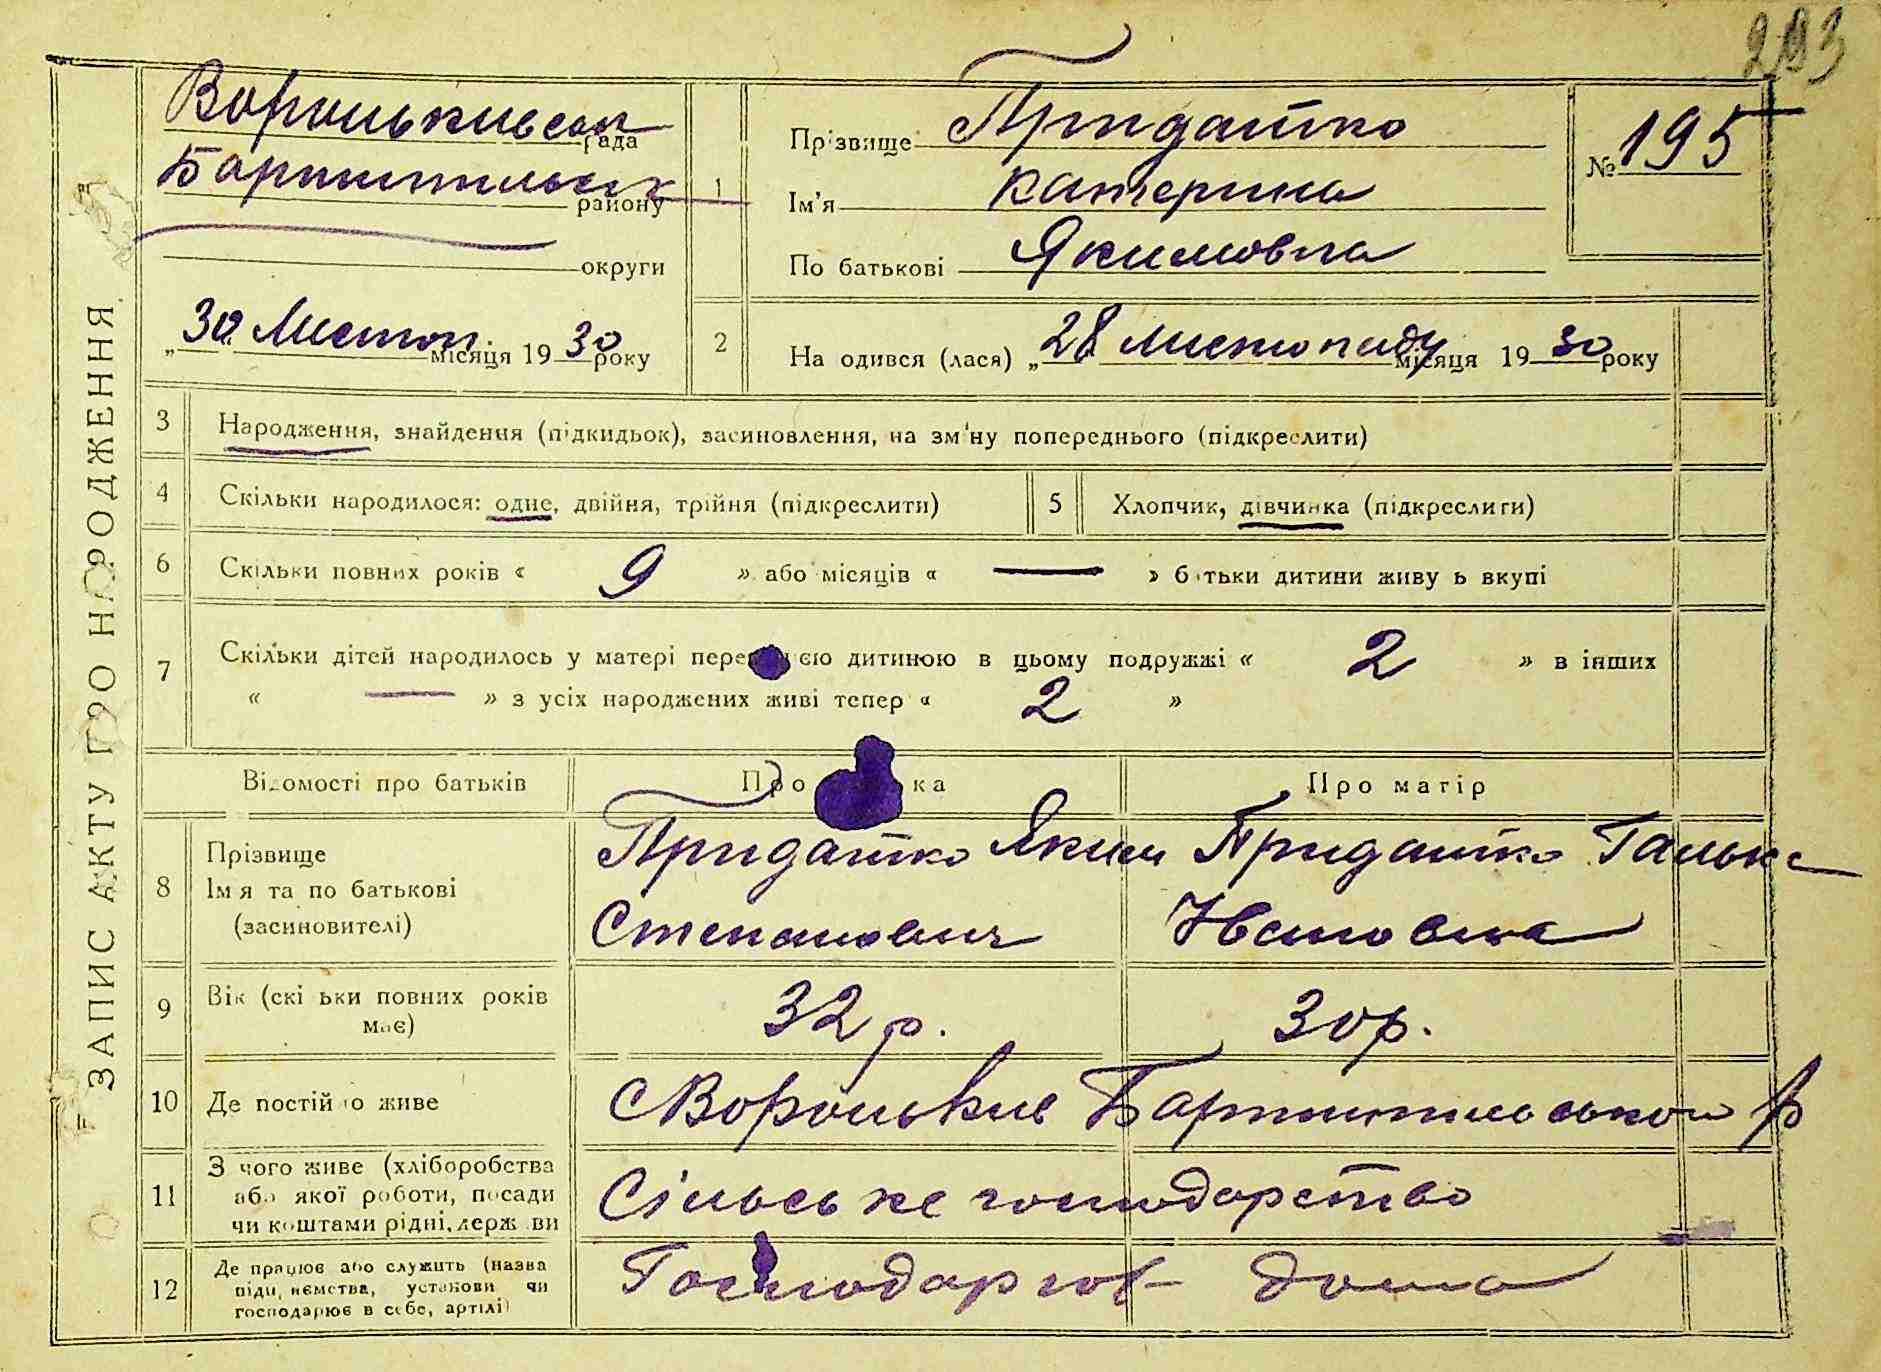 293
ЗАПИС АКТУ ПРО НАРОДЖЕННЯ
Вороньківська рада
Бориспільськ району
округи
„30 Листоп. місяця 1930 року
1
Прізвище Придатко
Ім'я Катерина
По батькові Якимовна
№ 195
2
На одився (лася) „28 листопаду місяця 1930 року
3 Народження, знайдення (підкидьок), засиновлення, на зм'ну попереднього (підкреслити)
4 Скільки народилося: одне, двійня, трійня (підкреслити) 5 Хлопчик, дівчинка (підкреслити)
6 Скільки повних років « 9 » або місяців « — » батьки дитини живу ь вкупі
7 Скільки дітей народилось у матері перед цією дитиною в цьому подружжі « 2 » в інших
« — » з усіх народжених живі тепер « 2 »
Відомості про батьків Про батька Про матір
8 Прізвище Ім я та по батькові (засиновителі)
Придатко Яким Придатко Галька
Степанович Ивановна
9 Вік (скі ьки повних років має) 32 р. 30 р.
10 Де постійно живе с Вороньків Бориспільського р
11 З чого живе (хліборобства
або якої роботи, посади
чи коштами рідні, держ ви
Сільське господарство
12 Де працює або служить (назва
підприємства, установи чи
господарює в себе, артілі)
Господарює дома